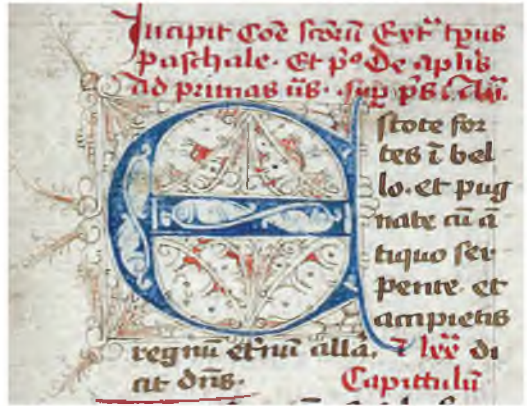 Incipit Cõe scõrũ Ext᷑ tp̃us
paschale. Et p̃º De ap̃lis
Ad primas ũs. sup̃ p̃s
Estote for
tes ĩ bel
lo. et pug
nate cũ ã
tiquo ser
pente. et
accipietis
regnũ et̃nũ all̃a. di
cit dñs. Capittulũ